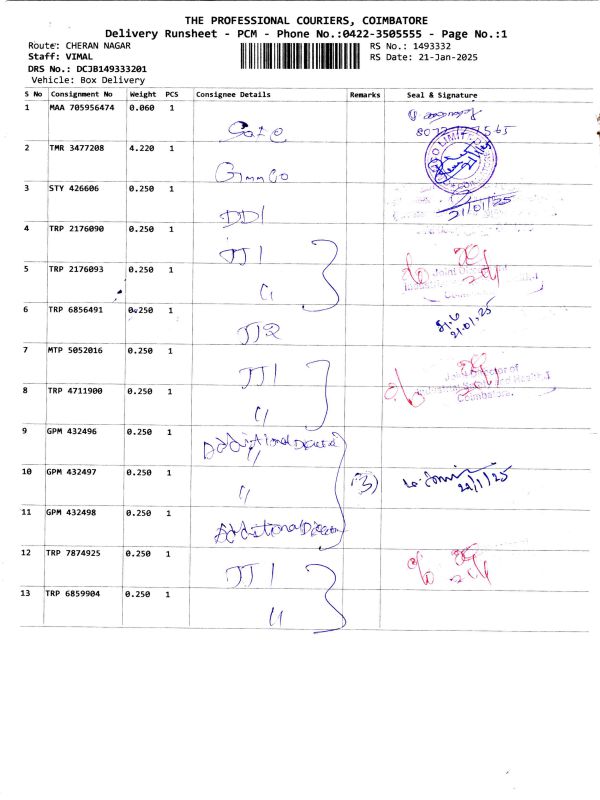 THE PROFESSIONAL COURIERS, COIMBATORE
Delivery Runsheet - PCM - Phone No.:0422-3505555 - Page No.:1
Route: CHERAN NAGAR RS No.: 1493332
Staff: VIMAL RS Date: 21-Jan-2025
DRS No.: DCJB149333201
Vehicle: Box Delivery
S No Consignment No Weight PCS Consignee Details Remarks Seal & Signature
1 MAA 705956474 0.060 1
2 TMR 3477208 4.220 1
3 STY 426606 0.250 1 DD1 21/01/25
4 TRP 2176090 0.250 1 JJ1
5 TRP 2176093 0.250 1 "
6 TRP 6856491 0.250 1 JJ2 21.01.25
7 MTP 5052016 0.250 1 JJ1
8 TRP 4711900 0.250 1 "
Coimbatore.
9 GPM 432496 0.250 1 Additional
10 GPM 432497 0.250 1 " (3) 22/1/25
11 GPM 432498 0.250 1 Additional
12 TRP 7874925 0.250 1 JJ1
13 TRP 6859904 0.250 1 "